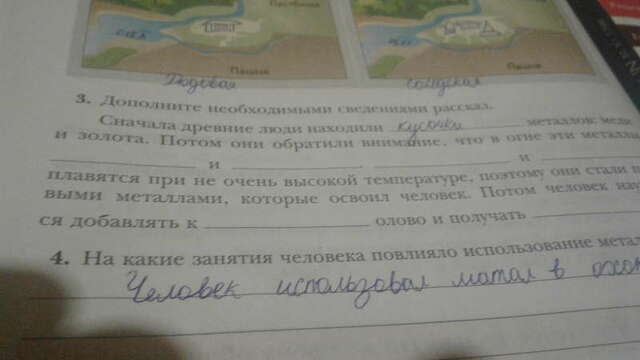 Пашня
Родовая
Пашня
соседская
3. Дополните необходимыми сведениями рассказ.
Сначала древние люди находили кусочки металлов: меди
и золота. Потом они обратили внимание, что в огне эти металлы
и и
плавятся при не очень высокой температуре, поэтому они стали
выми металлами, которые освоил человек. Потом человек
ся добавлять к олово и получать
4. На какие занятия человека повлияло использование
Человек использовал матал в